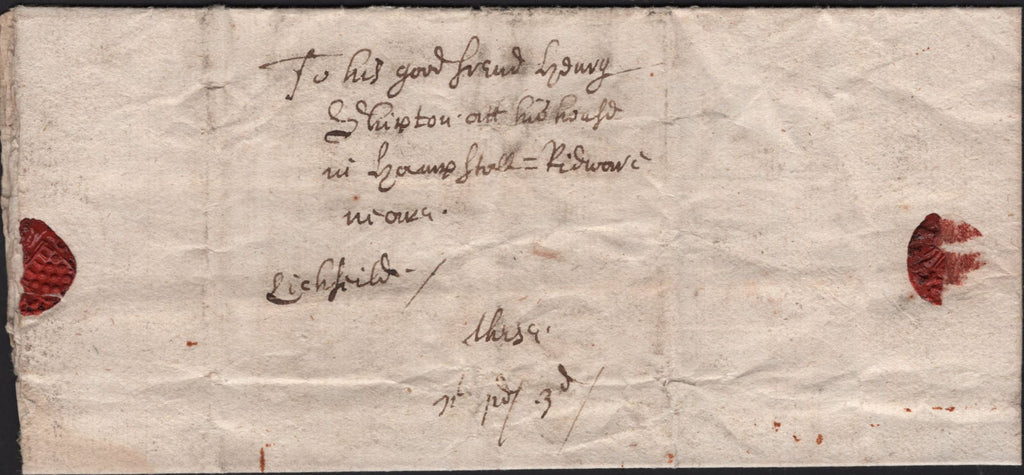 To his good frend Henry
Shipton att his house
in Hampstall = Ridware
neare
Lichfeild /
these
pd 3d /